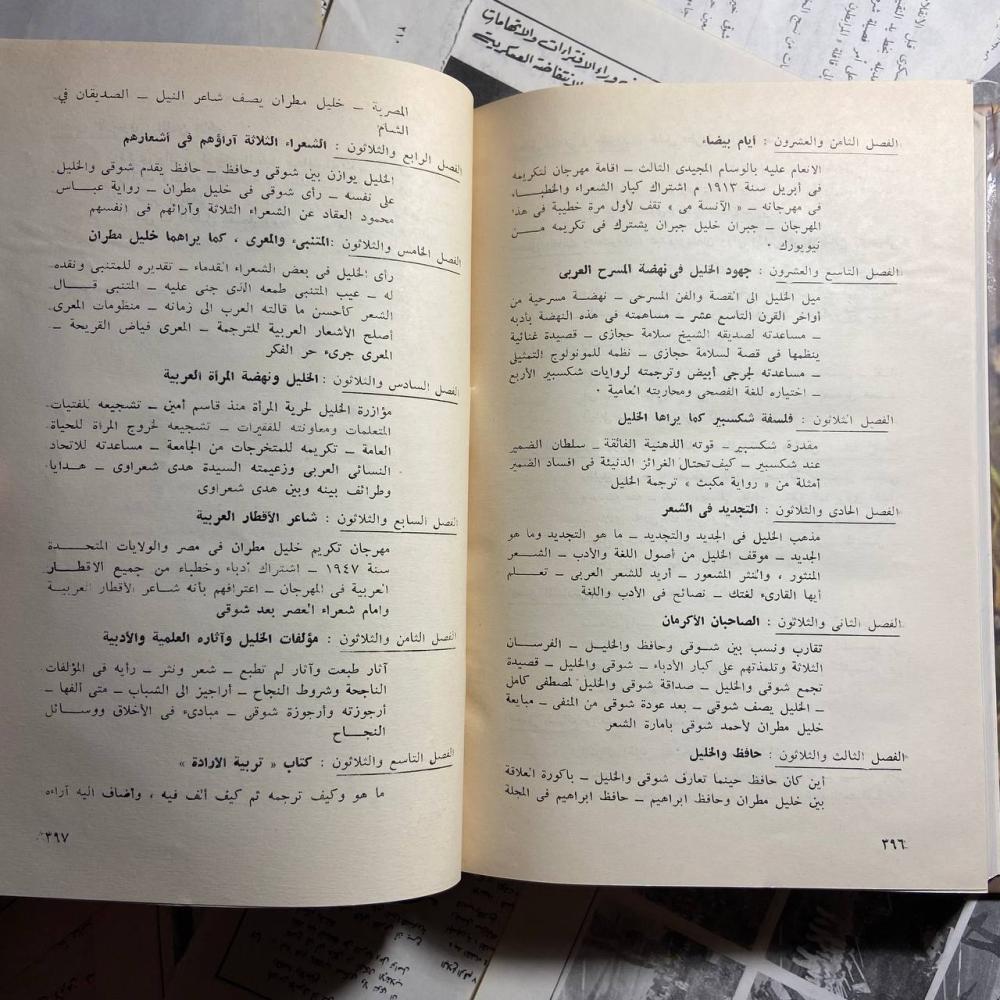 الفصل الثامن والعشرون : أيام بيضاء
الانعام عليه بالوسام المجيدى الثالث ــ اقامة مهرجان لتكريمه
فى أبريل سنة ١٩١٣ م اشتراك كبار الشعراء والخطباء
فى مهرجانه ــ « الآنسة مى » تقف لأول مرة خطيبة فى هذا
المهرجان ــ جبران خليل جبران يشترك فى تكريمه من
نيويورك ٠
الفصل التاسع والعشرون : جهود الخليل فى نهضة المسرح العربى
ميل الخليل الى القصة والفن المسرحى ــ نهضة مسرحية من
أواخر القرن التاسع عشر ــ مساهمته فى هذه النهضة بأدبه
ــ مساعدته لصديقه الشيخ سلامة حجازى ــ قصيدة غنائية
ينظمها فى قصة لسلامة حجازى ــ نظمه للمونولوج التمثيلى
ــ مساعدته لجرجى أبيض وترجمته لروايات شكسبير الأربع
ــ اختياره للغة الفصحى ومحاربته العامية ٠
الفصل الثلاثون : فلسفة شكسبير كما يراها الخليل
مقدرة شكسبير ــ قوته الذهنية الفائقة ــ سلطان الضمير
عند شكسبير ــ كيف تحتال الغرائز الدنيئة فى افساد الضمير
أمثلة من « رواية مكبث » ترجمة الخليل
الفصل الحادى والثلاثون : التجديد فى الشعر
مذهب الخليل فى الجديد والتجديد ــ ما هو التجديد وما هو
الجديد ــ موقف الخليل من أصول اللغة والأدب ــ الشعر
المنثور ، والنثر المشعور ــ أريد للشعر العربى ــ تعلم
أيها القارىء لغتك ــ نصائح فى الأدب واللغة
الفصل الثانى والثلاثون : الصاحبان الأكرمان
تقارب ونسب بين شوقى وحافظ والخليل ــ الفرسان
الثلاثة وتلمذتهم على كبار الأدباء ــ شوقى والخليل ــ قصيدة
تجمع شوقى والخليل ــ صداقة شوقى والخليل لمصطفى كامل
ــ الخليل يصف شوقى ــ بعد عودة شوقى من المنفى ــ مبايعة
خليل مطران لأحمد شوقى بامارة الشعر
الفصل الثالث والثلاثون : حافظ والخليل
أين كان حافظ حينما تعارف شوقى والخليل ــ باكورة العلاقة
بين خليل مطران وحافظ ابراهيم ــ حافظ ابراهيم فى المجلة
٣٩٦
المصرية ــ خليل مطران يصف شاعر النيل ــ الصديقان فى
الشام
الفصل الرابع والثلاثون : الشعراء الثلاثة آراؤهم فى أشعارهم
الخليل يوازن بين شوقى وحافظ ــ حافظ يقدم شوقى والخليل
على نفسه ــ رأى شوقى فى خليل مطران ــ رواية عباس
محمود العقاد عن الشعراء الثلاثة وآرائهم فى انفسهم
الفصل الخامس والثلاثون : المتنبىء والمعرى ، كما يراهما خليل مطران
رأى الخليل فى بعض الشعراء القدماء ــ تقديره للمتنبى ونقده
له ــ عيب المتنبى طمعه الذى جنى عليه ــ المتنبى قال
الشعر كأحسن ما قالته العرب الى زمانه ــ منظومات المعرى
أصلح الأشعار العربية للترجمة ــ المعرى فياض القريحة ــ
المعرى جرىء حر الفكر
الفصل السادس والثلاثون : الخليل ونهضة المرأة العربية
مؤازرة الخليل لحرية المرأة منذ قاسم أمين ــ تشجيعه للفتيات
المتعلمات ومعاونته للفقيرات ــ تشجيعه لخروج المرأة للحياة
العامة ــ تكريمه للمتخرجات من الجامعة ــ مساعدته للاتحاد
النسائى العربى وزعيمته السيدة هدى شعراوى ــ هدايا
وطرائف بينه وبين هدى شعراوى
الفصل السابع والثلاثون : شاعر الأقطار العربية
مهرجان تكريم خليل مطران فى مصر والولايات المتحدة
سنة ١٩٤٧ ــ اشتراك أدباء وخطباء من جميع الاقطار
العربية فى المهرجان ــ اعترافهم بأنه شاعر الأقطار العربية
وامام شعراء العصر بعد شوقى
الفصل الثامن والثلاثون : مؤلفات الخليل وآثاره العلمية والأدبية
آثار طبعت وآثار لم تطبع ــ شعر ونثر ــ رأيه فى المؤلفات
الناجحة وشروط النجاح ــ أراجيز الى الشباب ــ متى ألفها ــ
أرجوزته وأرجوزة شوقى ــ مبادىء فى الأخلاق ووسائل
النجاح
الفصل التاسع والثلاثون : كتاب « تربية الارادة »
ما هو وكيف ترجمه ثم كيف ألف فيه ، وأضاف اليه آراءه
٣٩٧
وراء الافتراءات والاتهامات
الانتفاضة العسكرية
٢١٠